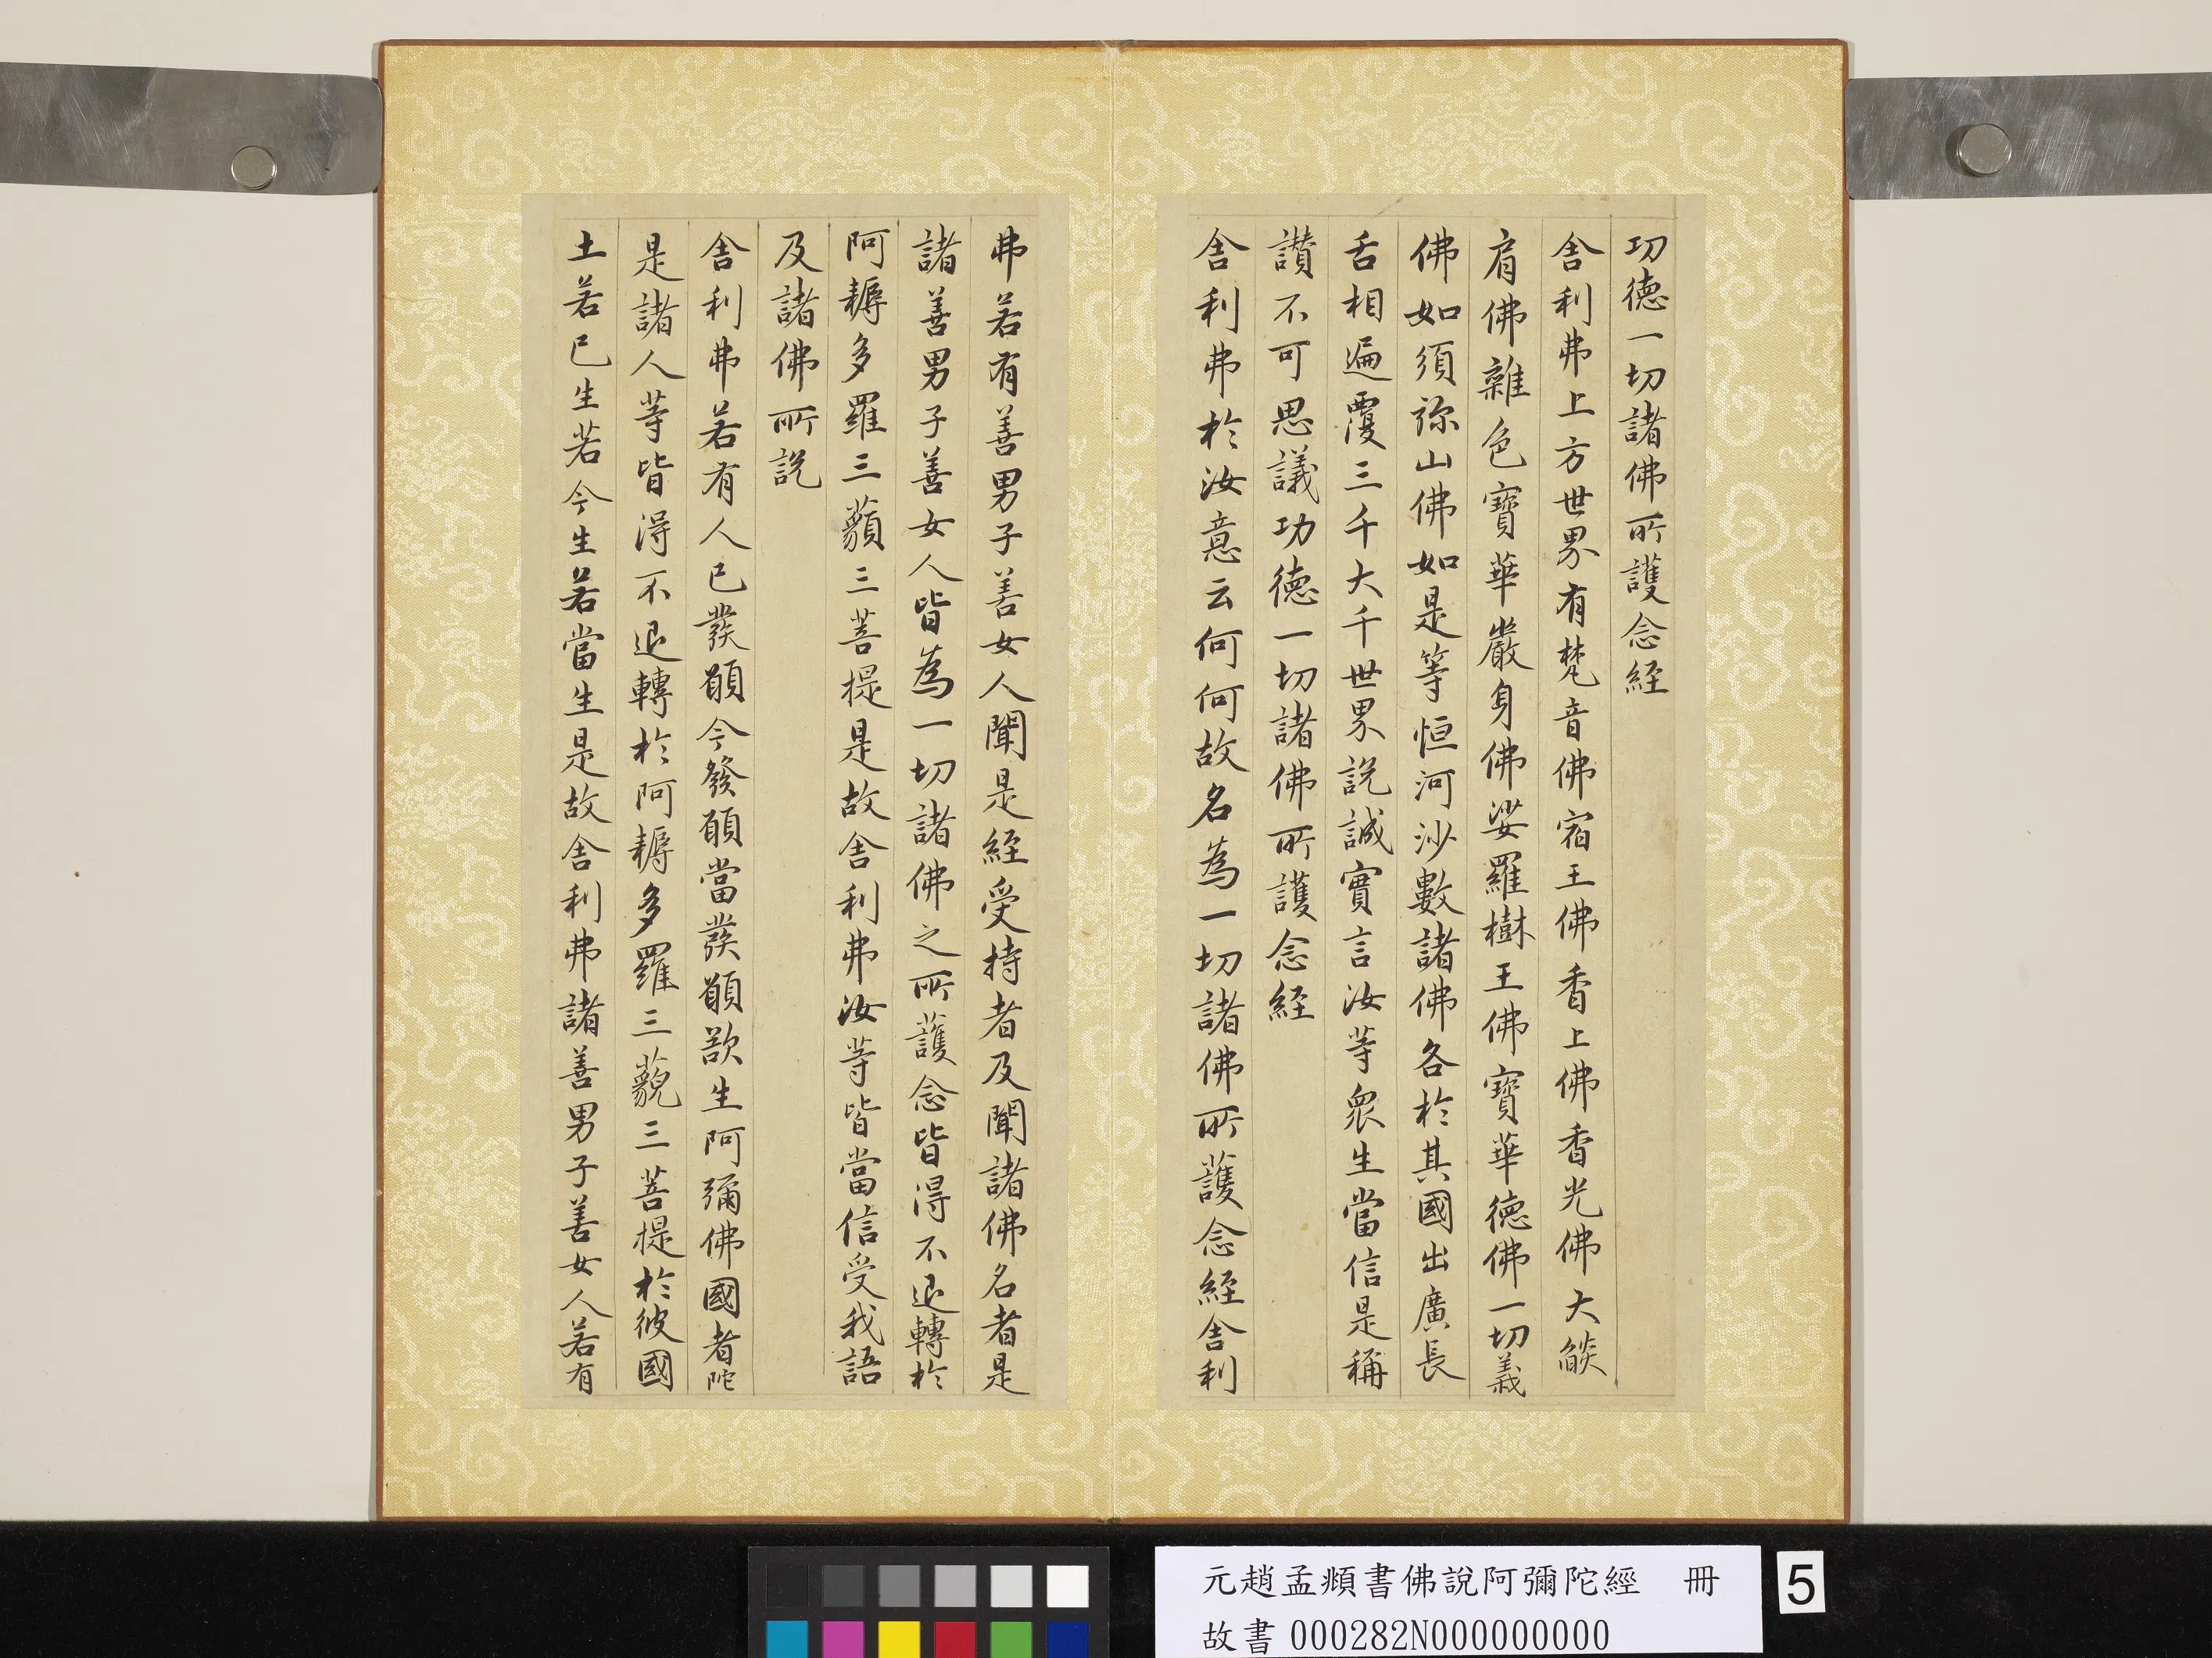 功德一切諸佛所護念經
舍利弗上方世界有梵音佛宿王佛香上佛香光佛大燄
肩佛雜色寶華嚴身佛娑羅樹王佛寶華德佛一切義
佛如須弥山佛如是等恒河沙數諸佛各於其國出廣長
舌相遍覆三千大千世界說誠實言汝等眾生當信是稱
讚不可思議功德一切諸佛所護念經
舍利弗於汝意云何何故名為一切諸佛所護念經舍利
弗若有善男子善女人聞是經受持者及聞諸佛名者是
諸善男子善女人皆為一切諸佛之所護念皆得不退轉於
阿耨多羅三藐三菩提是故舍利弗汝等皆當信受我語
及諸佛所說
舍利弗若有人已發願今發願當發願欲生阿彌佛國者陀
是諸人等皆得不退轉於阿耨多羅三藐三菩提於彼國
土若已生若今生若當生是故舍利弗諸善男子善女人若有
元趙孟頫書佛說阿彌陀經 冊
故書 000282N000000000
5